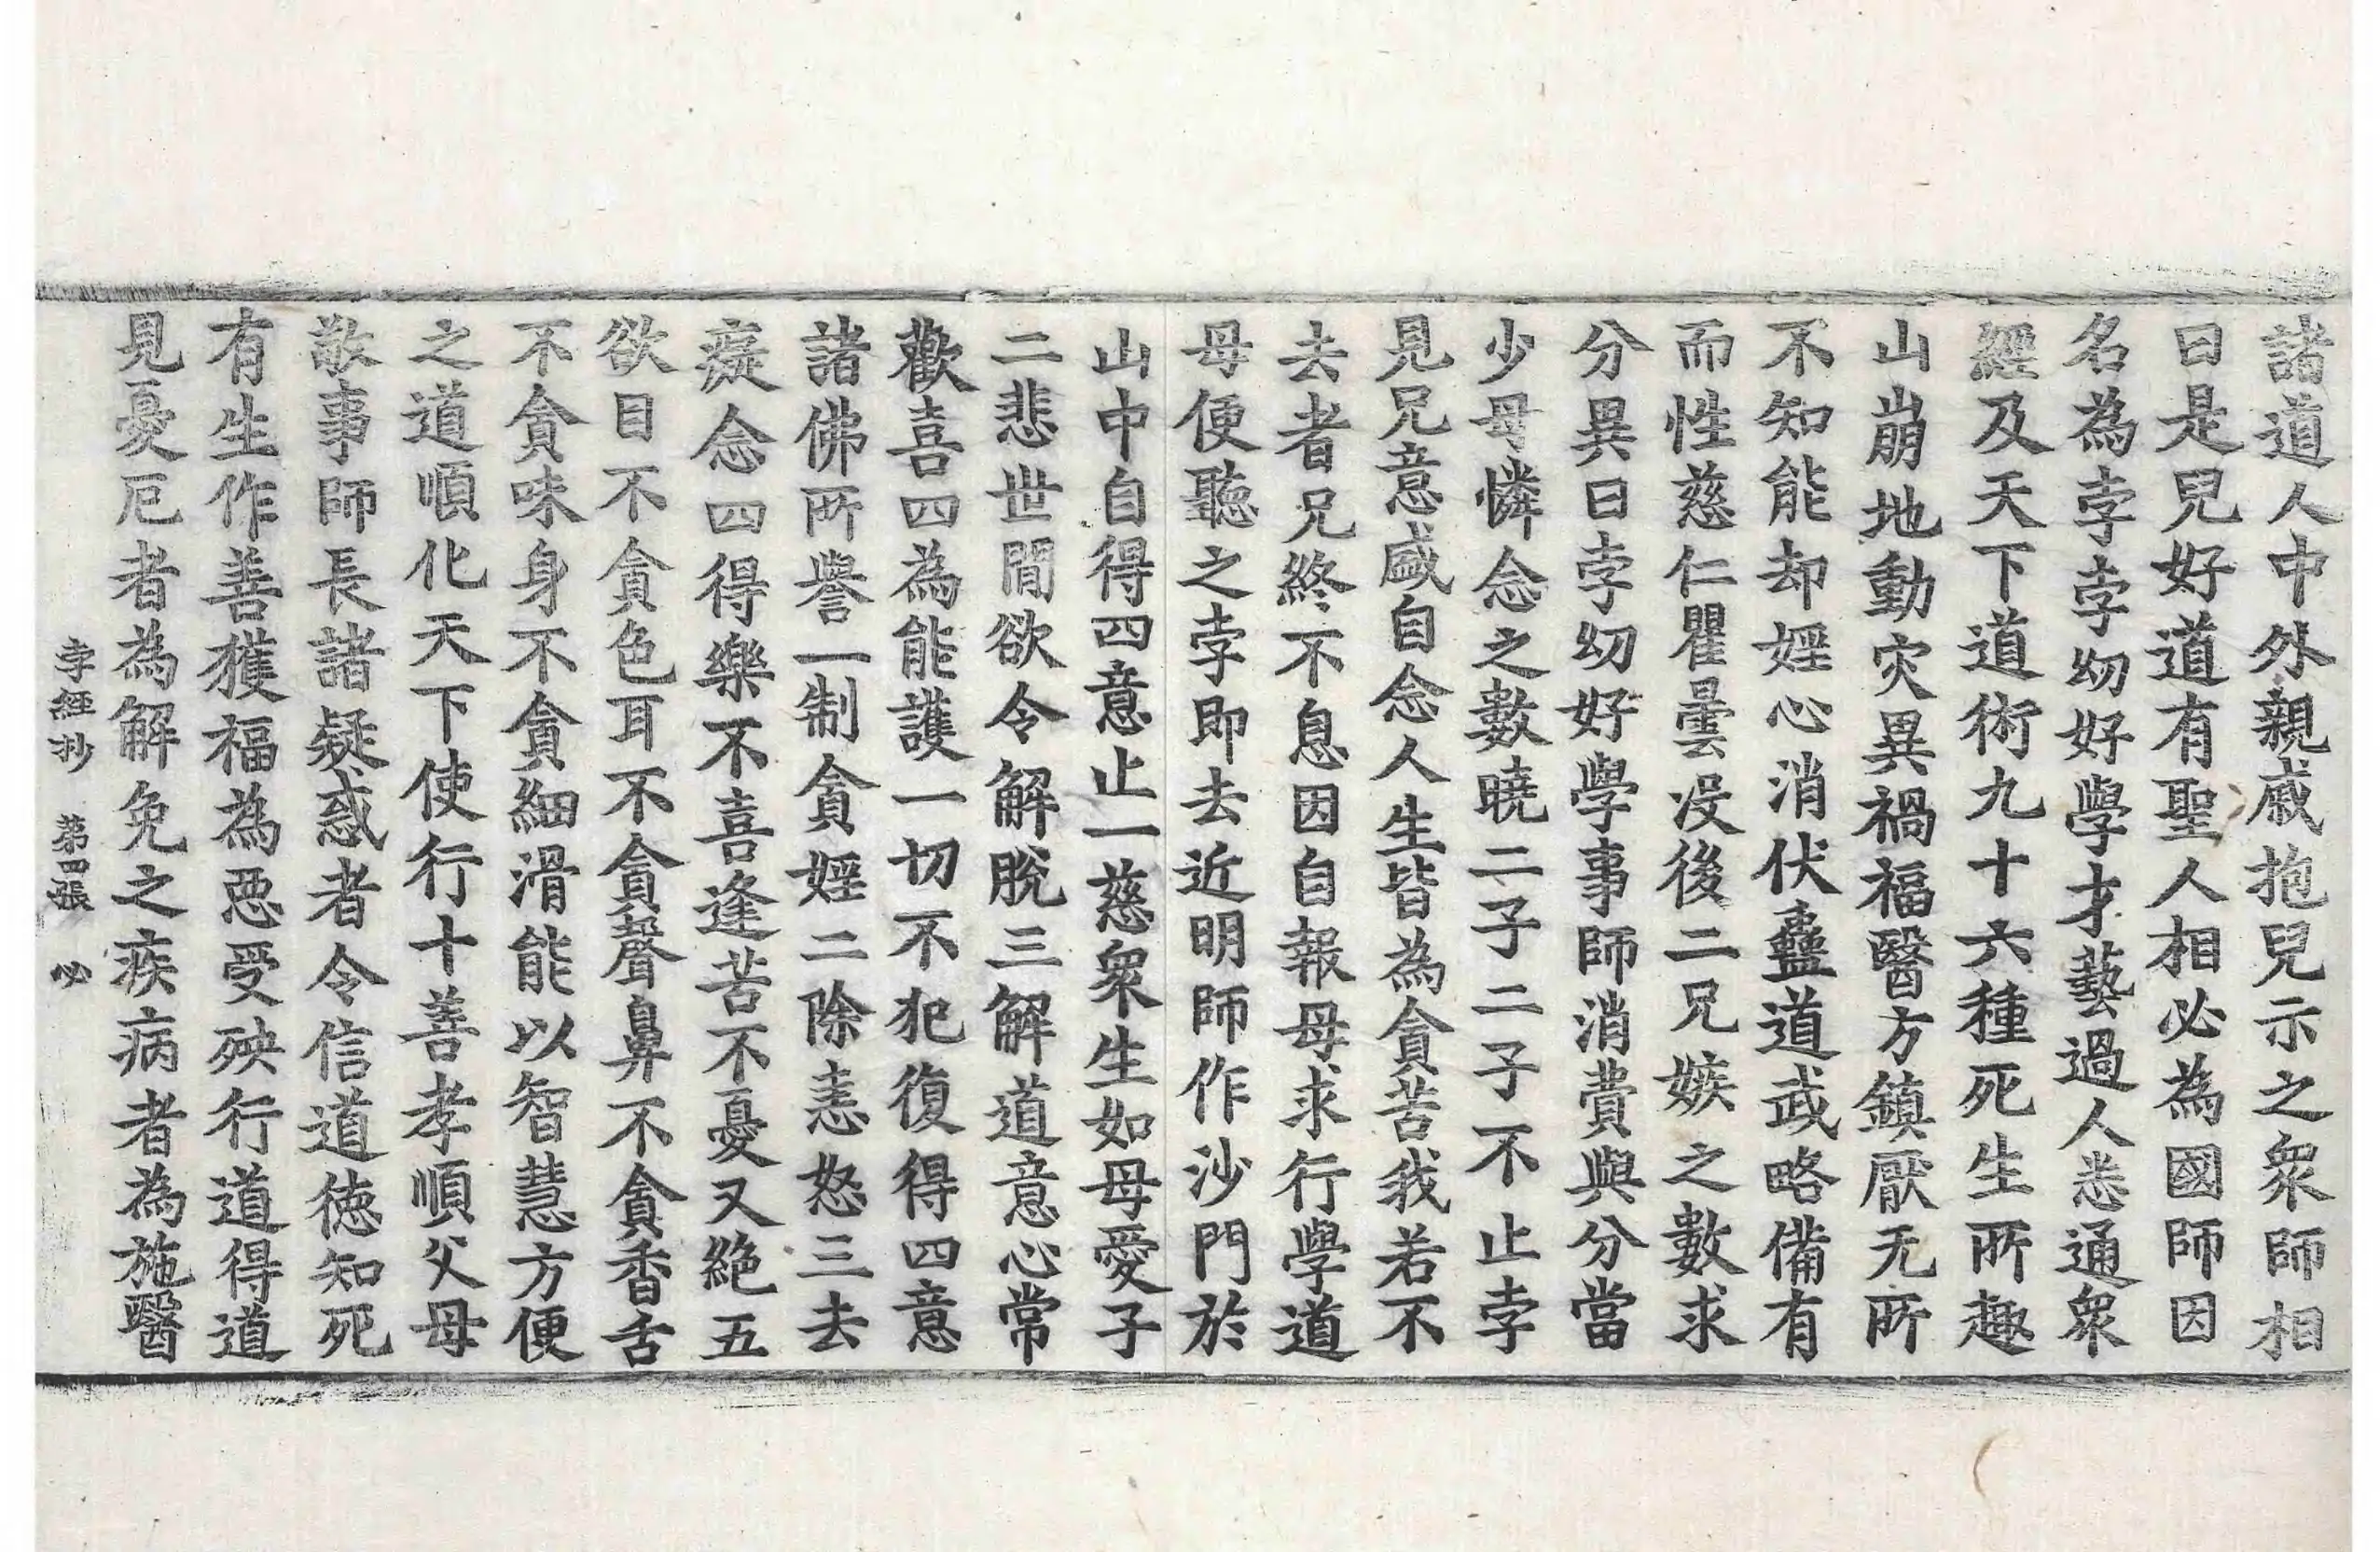 諸道人中外親戚抱兒示之衆師相
曰是兒好道有聖人相必為國師因
名為孛孛幼好學才藝過人悉通衆
經及天下道術九十六種死生所趣
山崩地動灾異禍福醫方鎮厭无所
不知能却婬心消伏蠱道武略備有
而性慈仁瞿曇没後二兄嫉之數求
分異曰孛幼好學事師消費與分當
少母憐念之數曉二子二子不止孛
見兄意盛自念人生皆為貪苦我若不
去者兄終不息因自報母求行學道
母便聽之孛即去近明師作沙門於
山中自得四意止一慈衆生如母愛子
二悲世間欲令解脫三解道意心常
歡喜四為能護一切不犯復得四意
諸佛所譽一制貪婬二除恚怒三去
癡念四得樂不喜逢苦不憂又絶五
欲目不貪色耳不貪聲鼻不貪香舌
不貪味身不貪細滑能以智慧方便
之道順化天下使行十善孝順父母
敬事師長諸疑惑者令信道徳知死
有生作善獲福為惡受殃行道得道
見憂厄者為解免之疾病者為施醫
孛經抄　第四張　必